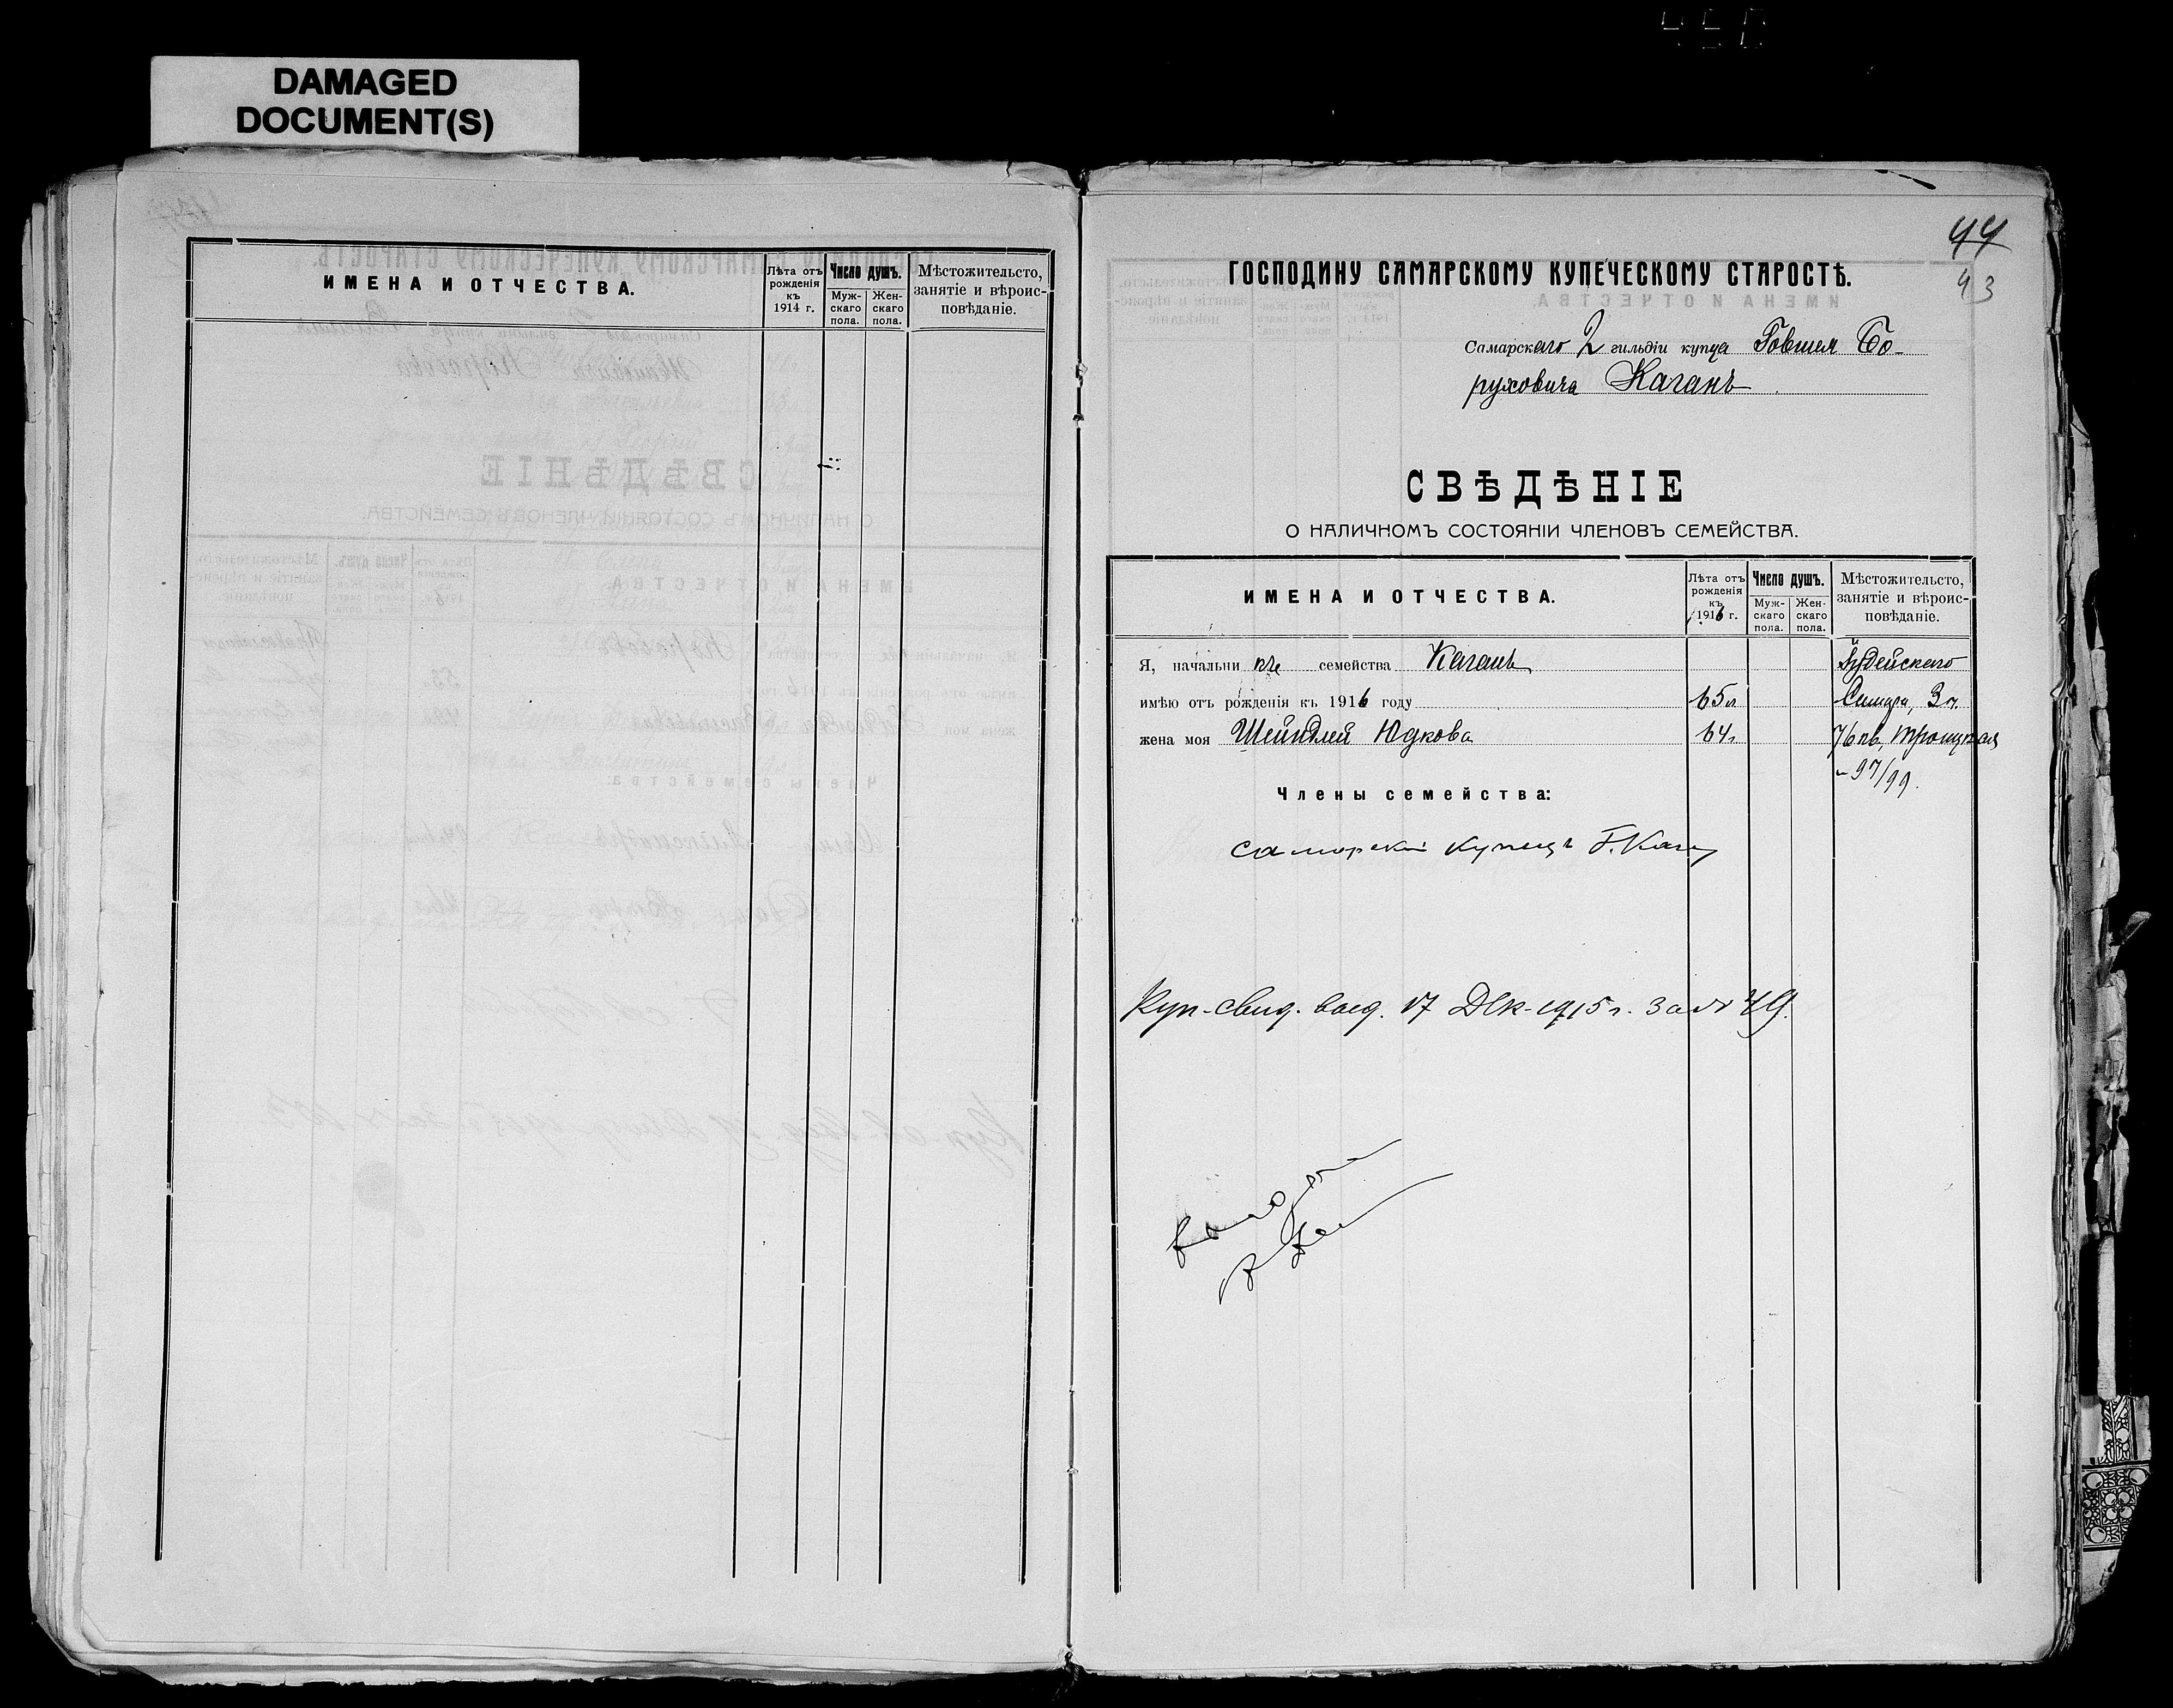 DAMAGED
DOCUMENT(S)
ИМЕНА И ОТЧЕСТВА.
Лѣта отъ рожденія къ 1914 г.
Число душъ.
Муж-скаго пола.
Жен-скаго пола.
Мѣстожительсто, занятіе и вѣроис-повѣданіе.
44
43
ГОСПОДИНУ САМАРСКОМУ КУПЕЧЕСКОМУ СТАРОСТѢ.
Самарскаго 2 гильдіи купца Говшея Бо-
руховича Каганъ
СВѢДѢНІЕ
О НАЛИЧНОМЪ СОСТОЯНІИ ЧЛЕНОВЪ СЕМЕЙСТВА.
ИМЕНА И ОТЧЕСТВА.
Лѣта отъ рожденія къ 1916 г.
Число душъ.
Муж-скаго пола.
Жен-скаго пола.
Мѣстожительсто, занятіе и вѣроис-повѣданіе.
Я, начальникъ семейства Каганъ Іудейскаго
имѣю отъ рожденія къ 1916 году 65 л Самара, 3 ч.
жена моя Шейндлей Юдкова 64 г 76 кв, Троицкая
97/99.
Члены семейства:
самарскій купецъ Г. Каганъ
Куп-свид. выд. 17 Дек-1915 г. за № 49.